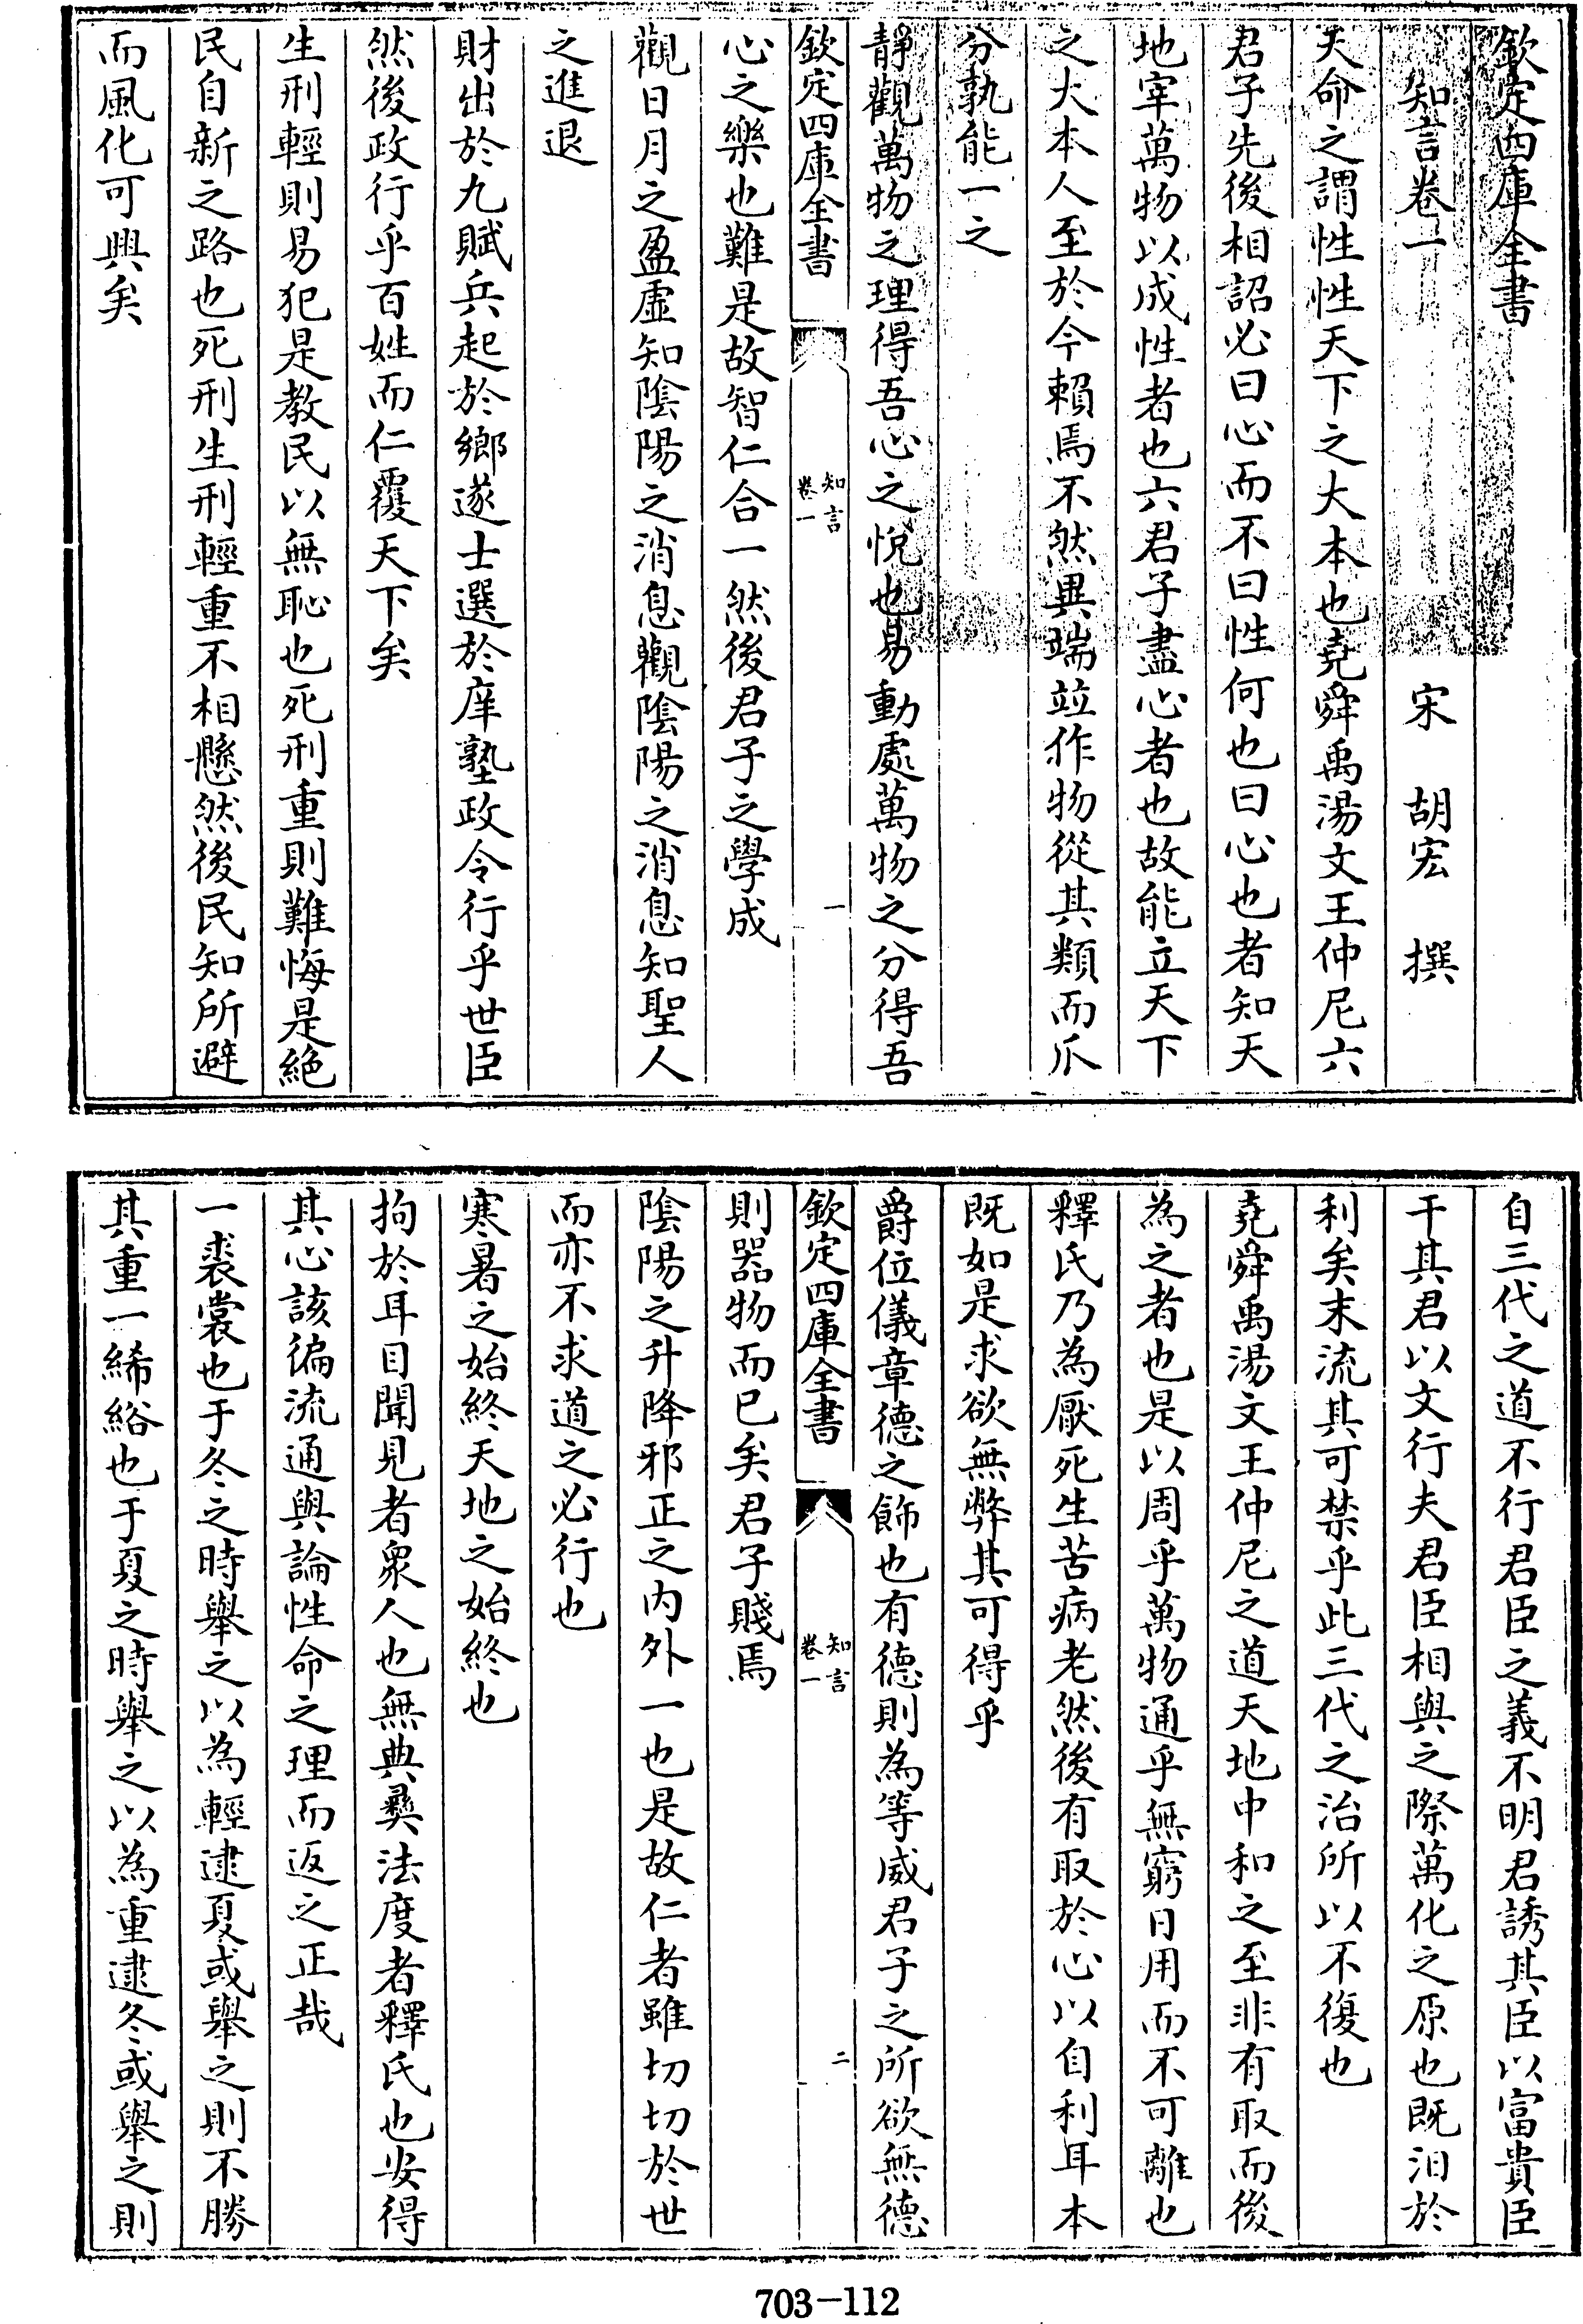 欽定四庫全書
知言卷一
宋 胡宏 撰
天命之謂性性天下之大本也堯舜禹湯文王仲尼六
君子先後相詔必曰心而不曰性何也曰心也者知天
地宰萬物以成性者也六君子盡心者也故能立天下
之大本人至於今賴焉不然異端竝作物從其類而爪
分孰能一之
靜觀萬物之理得吾心之悅也易動處萬物之分得吾
欽定四庫全書
知言
卷一
一
心之樂也難是故智仁合一然後君子之學成
觀日月之盈虛知陰陽之消息觀陰陽之消息知聖人
之進退
財出於九賦兵起於鄉遂士選於庠塾政令行乎世臣
然後政行乎百姓而仁覆天下矣
生刑輕則易犯是教民以無恥也死刑重則難悔是絕
民自新之路也死刑生刑輕重不相懸然後民知所避
而風化可興矣
自三代之道不行君臣之義不明君誘其臣以富貴臣
干其君以文行夫君臣相與之際萬化之原也既汩於
利矣末流其可禁乎此三代之治所以不復也
堯舜禹湯文王仲尼之道天地中和之至非有取而後
為之者也是以周乎萬物通乎無窮日用而不可離也
釋氏乃為厭死生苦病老然後有取於心以自利耳本
既如是求欲無弊其可得乎
爵位儀章德之飾也有德則為等威君子之所欲無德
欽定四庫全書
知言
卷一
二
則器物而已矣君子賤焉
陰陽之升降邪正之內外一也是故仁者雖切切於世
而亦不求道之必行也
寒暑之始終天地之始終也
拘於耳目聞見者衆人也無典彝法度者釋氏也安得
其心該徧流通與論性命之理而返之正哉
一裘裳也于冬之時舉之以為輕逮夏或舉之則不勝
其重一絺綌也于夏之時舉之以為重逮冬或舉之則
703-112